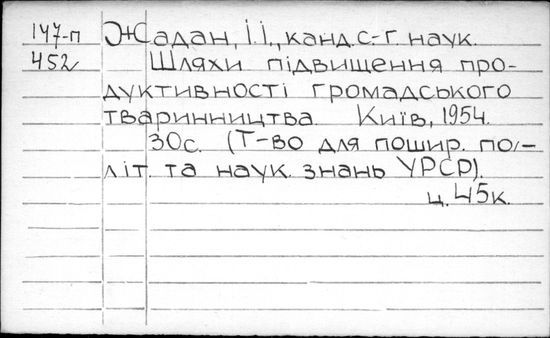 147-п Жадан, І.І., канд. с.-г. наук.
452 Шляхи підвищення про-
дуктивності громадського
тваринництва Київ, 1954.
30с. (Т-во для пошир. по/-
літ. та наук. знань УРСР).
ц. 45к.